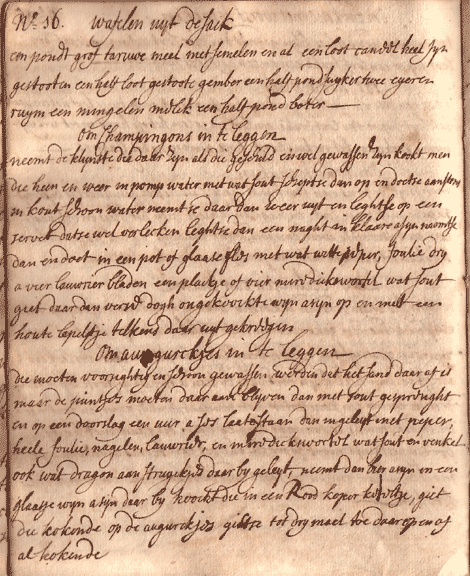 No 16. wafelen uyt de suik
een pondt grof taruwe meel met semelen en al een loot canéél heel fyn
gestooten een half loot gestoote gember een half pond suyker twee eyeren
ruym een mingelen melk een half pond boter
Om Champingons in te leggen
neemt de klynste die daar zyn als die geschild en wel gewassen zyn kookt men
die heen en weer in pomp water met wat sout scheptse dan op en doetse aanstons
in kout schoon water neemt se daar dan weer uyt en leghtse op een
servet datse wel verlecken leghtse dan een naght in klaare asyn neemtse
dan en doet in een pot of glaase fles met wat witte peper, foulie dry
a vier lauwrier bladen een plackje of vier mierdickwortel wat sout
giet daar dan versse dogh ongekoockte wyn asyn op en met een
houte lepeltje telkens daar uyt gekreegen
Om augurckjes in te leggen
die moeten voorsightig en schoon gewassen werden dat het sand daar af is
maar de puntjes moeten daar aan blyven dan met sout gesprenght
en op een doorslag een uur a ses laate staan dan ingeleyt met peper,
heele foulie, nagelen, lauwrier, en mierdickwortel wat sout en venkel
ook wat dragon aan struyckjes daar by geleyt, neemt dan bier asyn in een
glaasje wyn asyn daar by koockt die in een Rood koper keteltje, giet
die kokende op de augurckjes gietse tot drymael toe daar op en af
al kokende